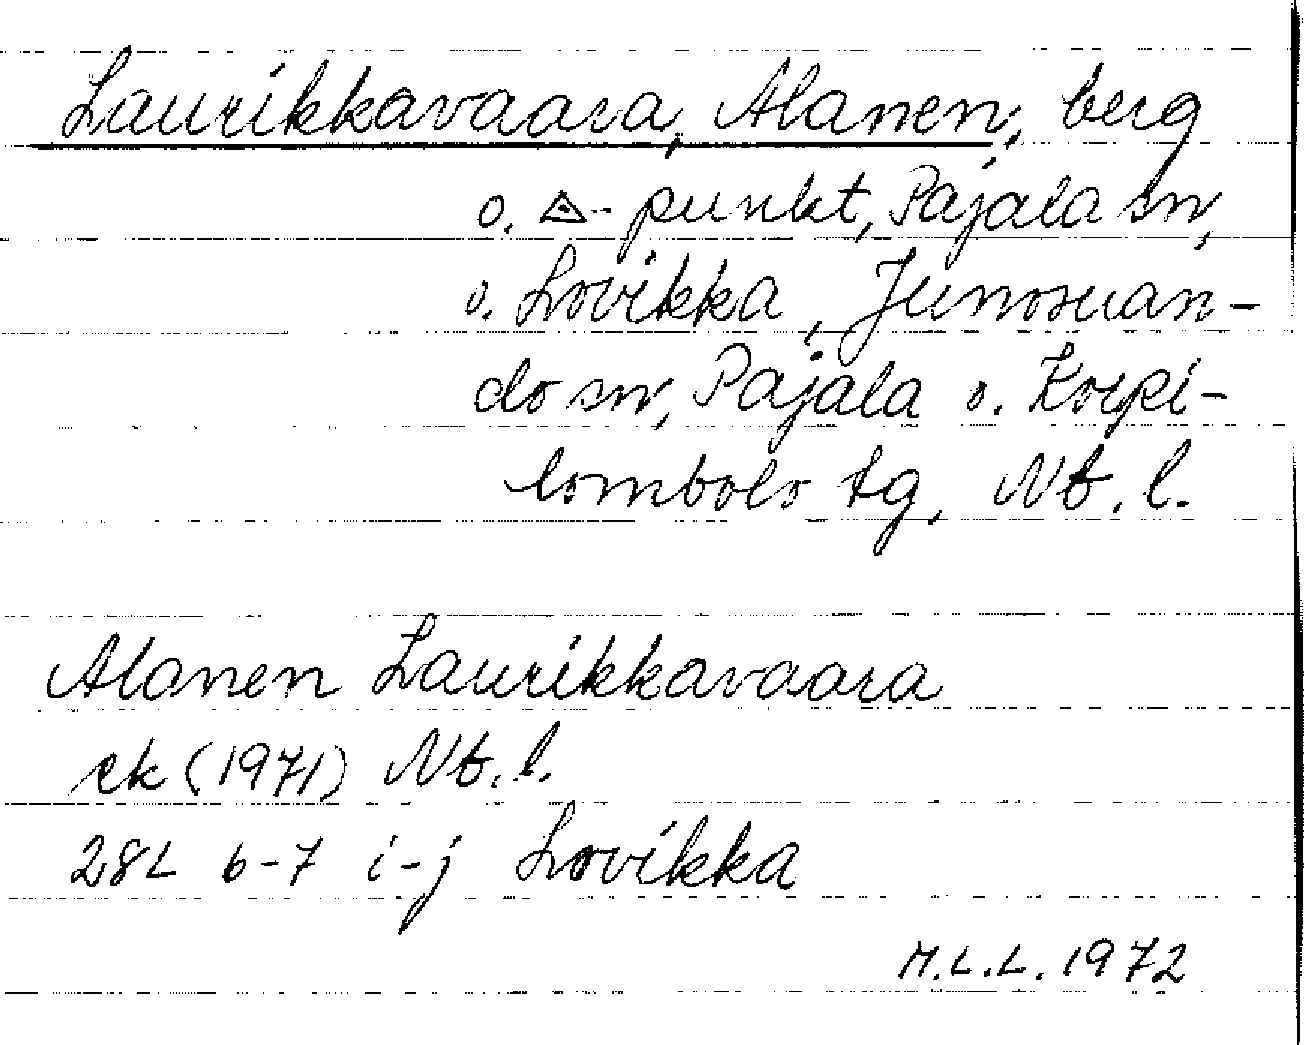 Laurikkavaara, Alanen, berg
o. △-punkt, Pajala sn,
o. Lovikka, Junosuan-
do sn, Pajala o. Korpi-
lombolo tg, Nb. l.
Alanen Laurikkavaara
ek (1971) Nb. l.
28L 6-7 i-j Lovikka
M.L.L. 1972